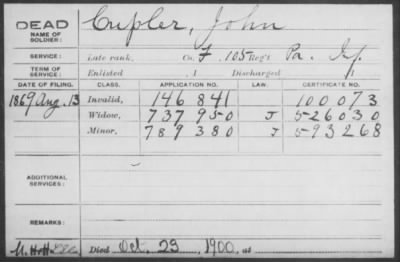 DEAD
NAME OF SOLDIER: Cupler, John
SERVICE: Late rank, Co. F, 105 Reg't Pa. Inf.
TERM OF SERVICE: Enlisted , 1 Discharged , 1
DATE OF FILING. CLASS. APPLICATION NO. LAW. CERTIFICATE NO.
1869 Aug. 13 Invalid, 146 841 100 073
Widow, 737950 J 526030
Minor, 789380 J 593268
ADDITIONAL SERVICES:
REMARKS:
Died Oct. 23, 1900, at